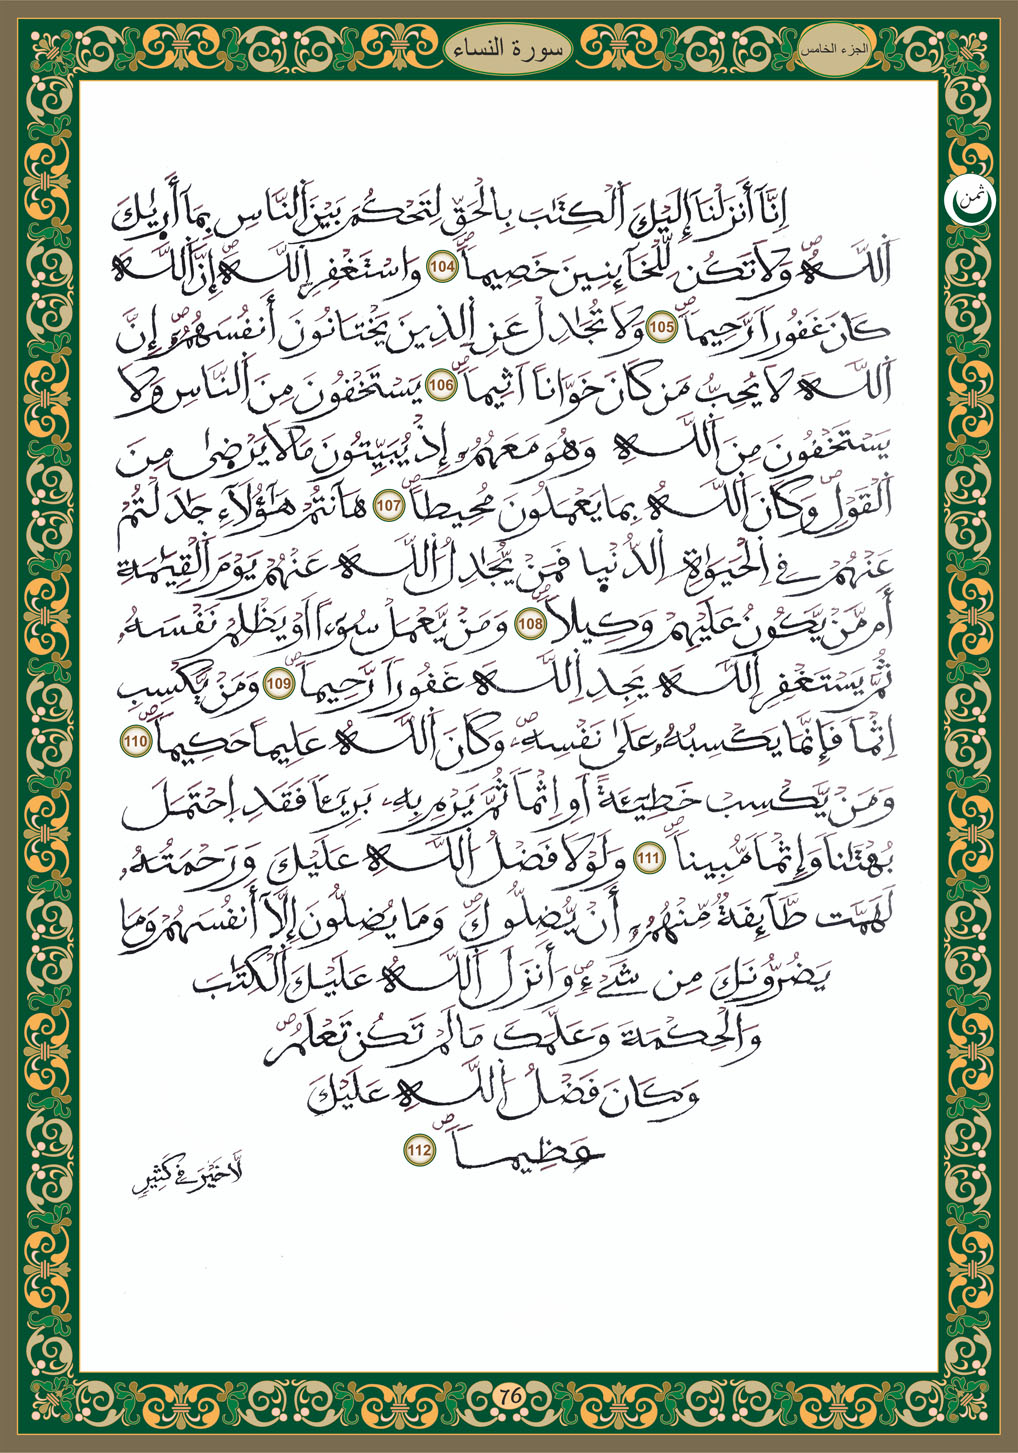 الجزء الخامس
سورة النساء
ثمن
اِنَّآ أَنزَلْنَآ إِلَيْكَ اَ۬لْكِتَٰبَ بِالْحَقِّ لِتَحْكُمَ بَيْنَ اَ۬لنَّاسِ بِمَآ أَر۪يٰكَ
اَ۬للَّهُۖ وَلَا تَكُن لِّلْخَآئِنِينَ خَصِيماٗۖ 104 وَاسْتَغْفِرِ اِ۬للَّهَۖ إِنَّ اَ۬للَّهَ
كَانَ غَفُوراٗ رَّحِيماٗۖ 105 وَلَا تُجَٰدِلْ عَنِ اِ۬لذِينَ يَخْتَانُونَ أَنفُسَهُمُۥٓۖ إِنَّ
اَ۬للَّهَ لَا يُحِبُّ مَن كَانَ خَوَّاناً اَثِيماٗۖ 106 يَسْتَخْفُونَ مِنَ اَ۬لنَّاسِ وَلَا
يَسْتَخْفُونَ مِنَ اَ۬للَّهِ وَهُوَ مَعَهُمُۥٓ إِذْ يُبَيِّتُونَ مَا لَا يَرْض۪يٰ مِنَ
اَ۬لْقَوْلِۖ وَكَانَ اَ۬للَّهُ بِمَا يَعْمَلُونَ مُحِيطاًۖ 107 هَآنتُمْ هَٰٓؤُلَآءِ جَٰدَلْتُمْ
عَنْهُمْ فِے اِ۬لْحَيَوٰةِ اِ۬لدُّنْي۪ا فَمَنْ يُّجَٰدِلُ اُ۬للَّهَ عَنْهُمْ يَوْمَ اَ۬لْقِيَٰمَةِ
أَم مَّنْ يَّكُونُ عَلَيْهِمْ وَكِيلاٗۖ 108 وَمَنْ يَّعْمَلْ سُوٓءاً اَوْ يَظْلِمْ نَفْسَهُۥ
ثُمَّ يَسْتَغْفِرِ اِ۬للَّهَ يَجِدِ اِ۬للَّهَ غَفُوراٗ رَّحِيماٗۖ 109 وَمَنْ يَّكْسِبِ
اِثْماٗ فَإِنَّمَا يَكْسِبُهُۥ عَلَيٰ نَفْسِهِۦۖ وَكَانَ اَ۬للَّهُ عَلِيماً حَكِيماٗۖ 110
وَمَنْ يَّكْسِبْ خَطِيٓـَٔةً اَوِ اِثْماٗ ثُمَّ يَرْمِ بِهِۦ بَرِيٓـٔاٗ فَقَدِ اِ۪حْتَمَلَ
بُهْتَٰناٗ وَإِثْماٗ مُّبِيناٗۖ 111 وَلَوْلَا فَضْلُ اُ۬للَّهِ عَلَيْكَ وَرَحْمَتُهُۥ
لَهَمَّت طَّآئِفَةٞ مِّنْهُمُۥٓ أَنْ يُّضِلُّوكَۖ وَمَا يُضِلُّونَ إِلَّآ أَنفُسَهُمْ وَمَا
يَضُرُّونَكَ مِن شَےْءٖۖ وَأَنزَلَ اَ۬للَّهُ عَلَيْكَ اَ۬لْكِتَٰبَ
وَالْحِكْمَةَ وَعَلَّمَكَ مَا لَمْ تَكُن تَعْلَمُۖ
وَكَانَ فَضْلُ اُ۬للَّهِ عَلَيْكَ
عَظِيماٗۖ 112
لَّا خَيْرَ فِے كَثِيرٖ
76